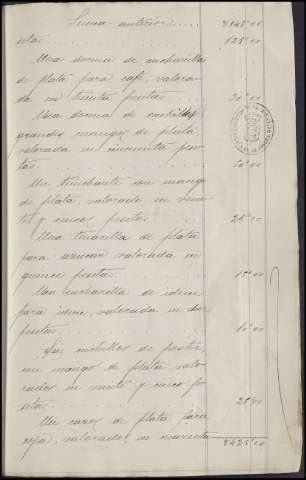 Suma anterior..... 8145'00
setas............ 125'00
Una docena de cucharillas
de plata para café, valora-
da en treinta pesetas... 30'00
Una docena de cuchillos
grandes mangos de plata,
valorada en cincuenta pe-
tas............. 50'00
Un trinchante con mango
de plata, valorado en vein-
te y cinco pesetas.... 25'00
Una tenacilla de plata
para azucar valorada en
quince pesetas....... 15'00
Una cucharilla de idem
para idem, valorada en
pesetas........... 10'00
Seis cuchillos de postre,
con mango de plata valo-
rados en veinte y cinco pe-
setas............ 25'00
Un cazo de plata para
sopa, valorado en cuarenta
8425'00